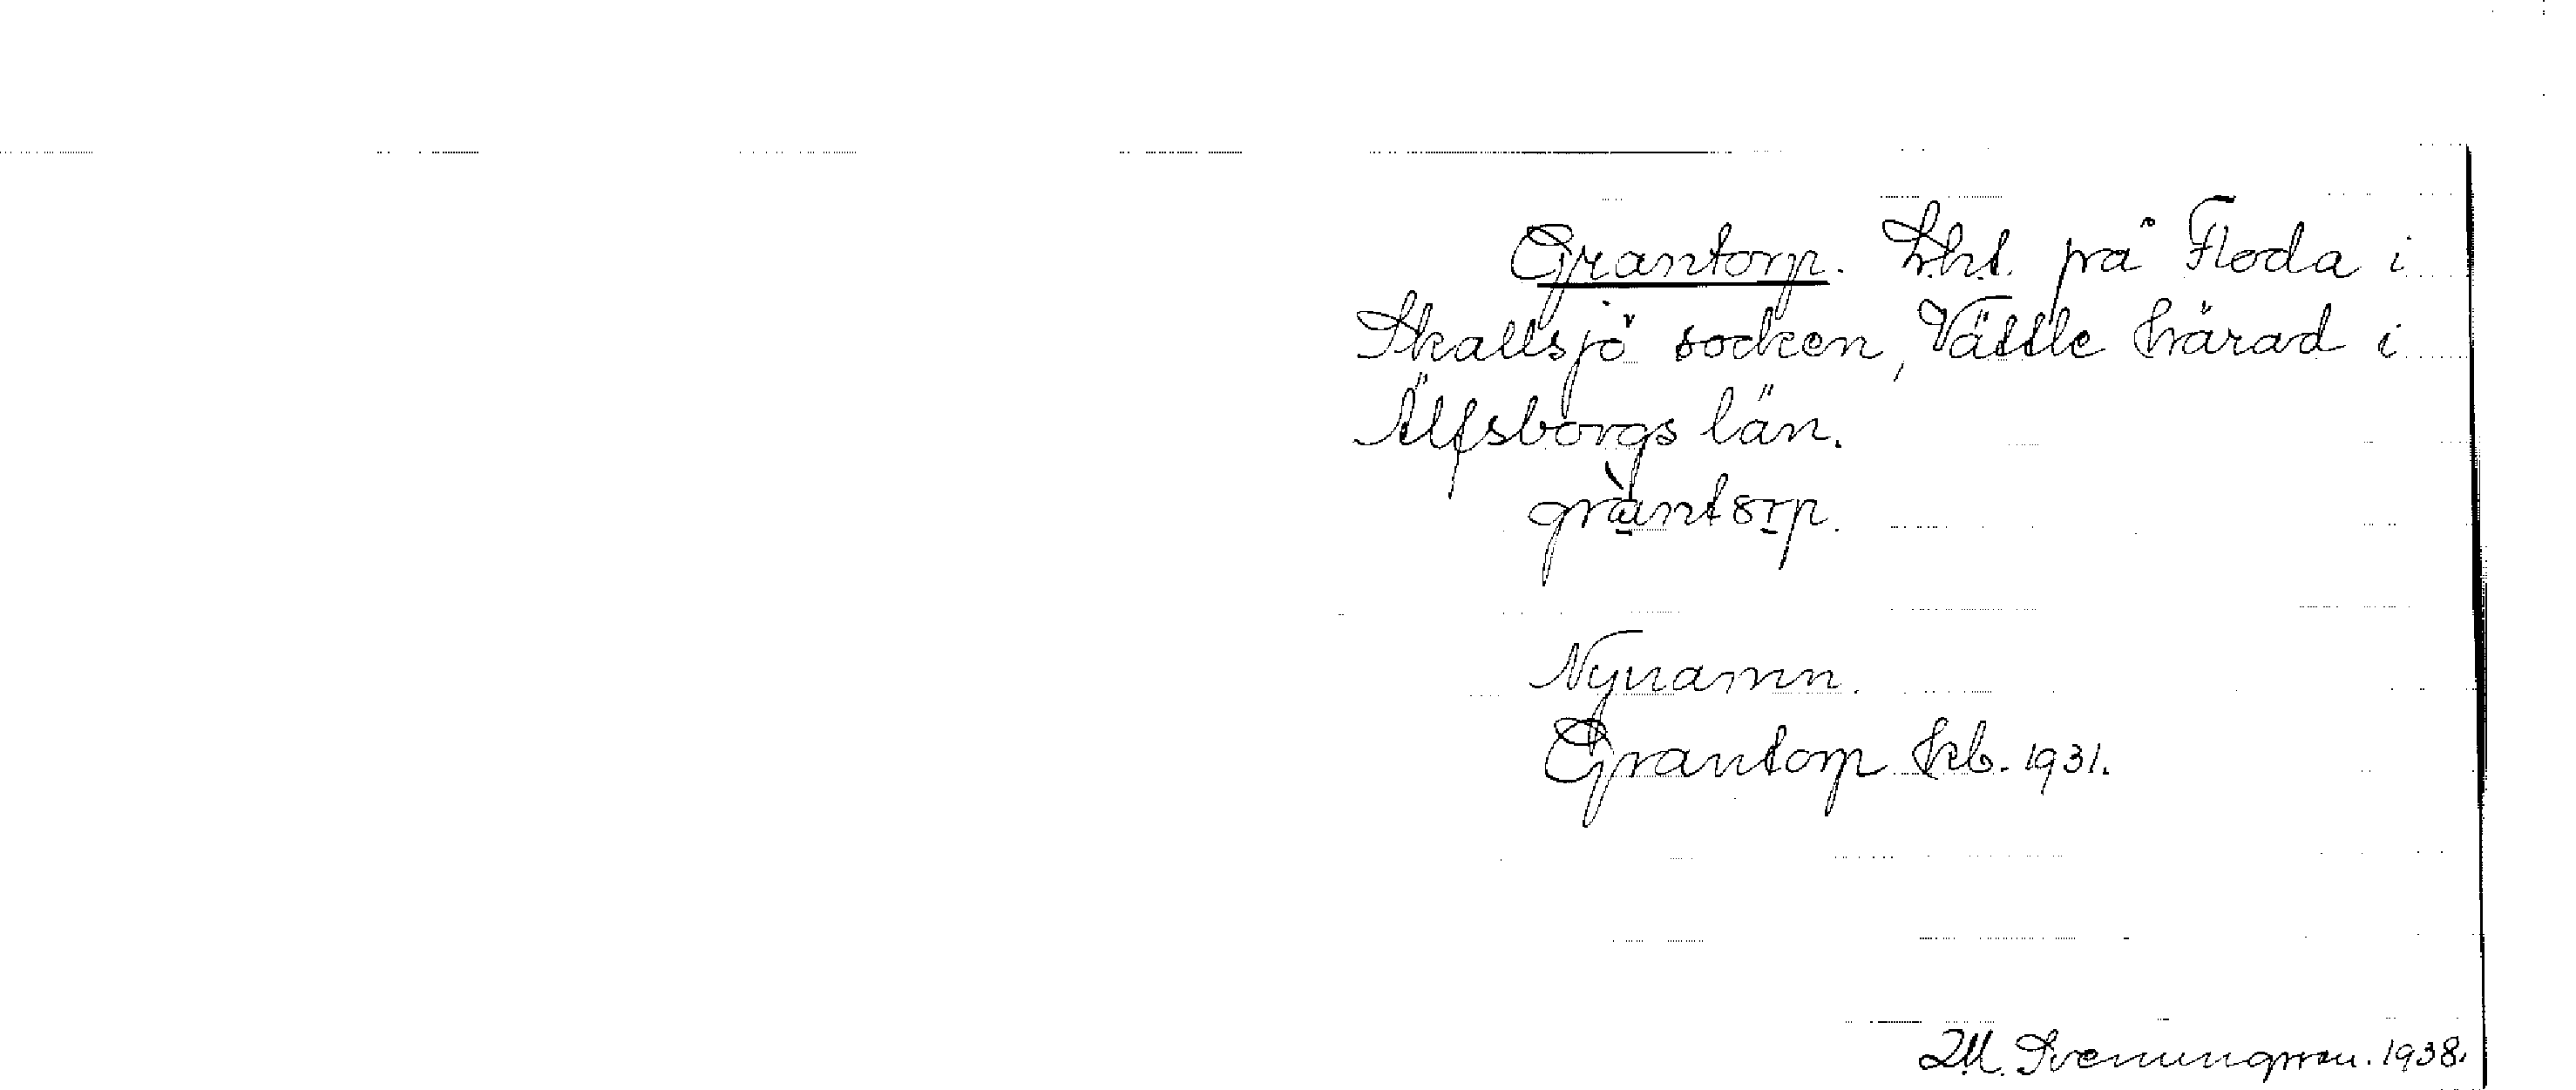 Grantorp. Lht. på Floda i
Skallsjö socken, Vättle härad i
Älfsborgs län.
gràntorp.
Nynamn.
Grantorp kb. 1931.
M. Svenungsson. 1938.